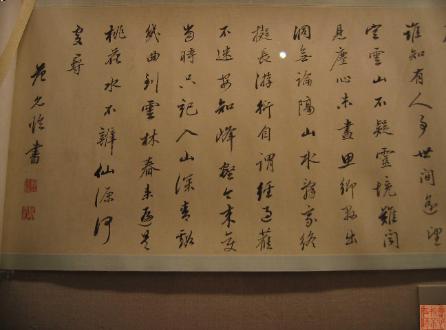 誰知有人事世間遙望
空雲山不疑靈境難聞
見塵心未盡思鄉縣出
洞無論隔山水辭家終
擬長游衍自謂經過舊
不迷安知峰壑今來變
當時只記入山深青谿
幾曲到雲林春來遍是
桃花水不辨仙源何
處尋
范允臨書